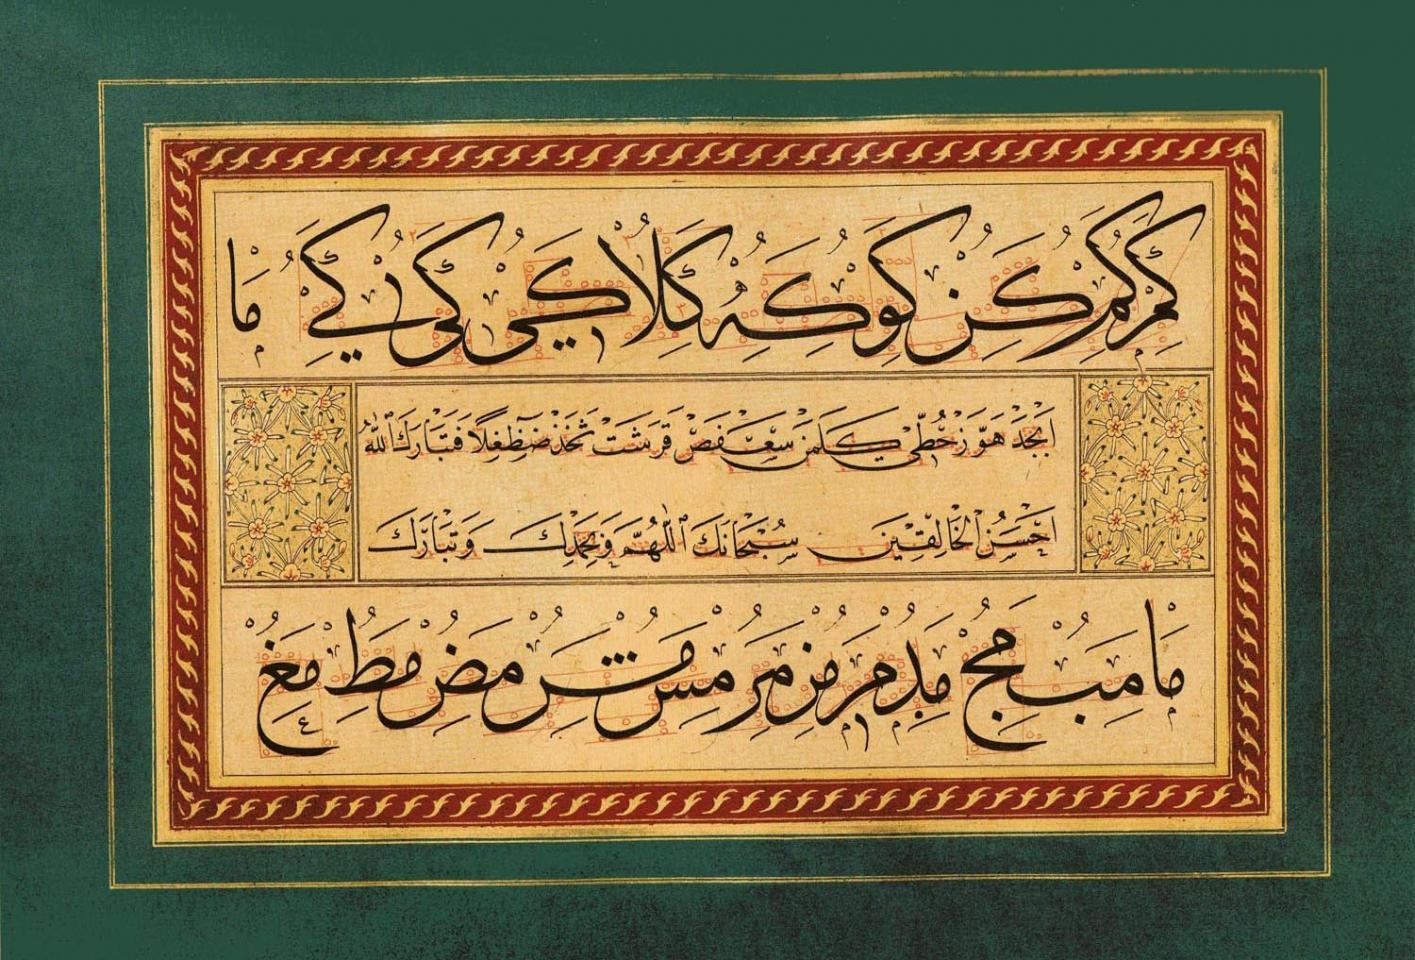 كم كم كن كو كه كلا كى كى كے ما
اَبْجَدْ هَوَّزْ حُطِّى كَلَمَنْ سَعْفَصْ قَرَشَتْ ثَخَذْ ضَظِغْلًا فَتَبَارَكَ اللّٰهُ
اَحْسَنُ الْخَالِقِينَ سُبْحَانَكَ اللّٰهُمَّ وَبِحَمْدِكَ وَتَبَارَكَ
ما مب مج مد مر مر مس مش مص مط مع